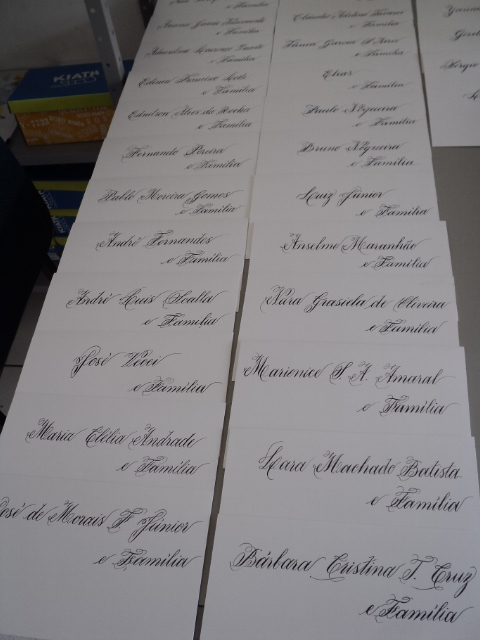 KIATO
e Familia
e Familia
e Familia
Edinei Francisco Leite
e Familia
Edmilson Alves da Rocha
e Familia
Fernando Pereira
e Familia
Pablo Moreira Gomes
e Familia
André Fernandes
e Familia
André Luis
e Familia
José Vicci
e Familia
Maria Clélia Andrade
e Familia
José de Morais F Júnior
e Familia
e Familia
e Familia
Elias
e Familia
Paulo Nogueira
e Familia
Bruno Nogueira
e Familia
Cruz Júnior
e Familia
Anselmo Maranhão
e Familia
Nára Grasiela de Oliveira
e Familia
Marionice S. A. Amaral
e Familia
Lara Machado Batista
e Familia
Bárbara Cristina T. Cruz
e Familia